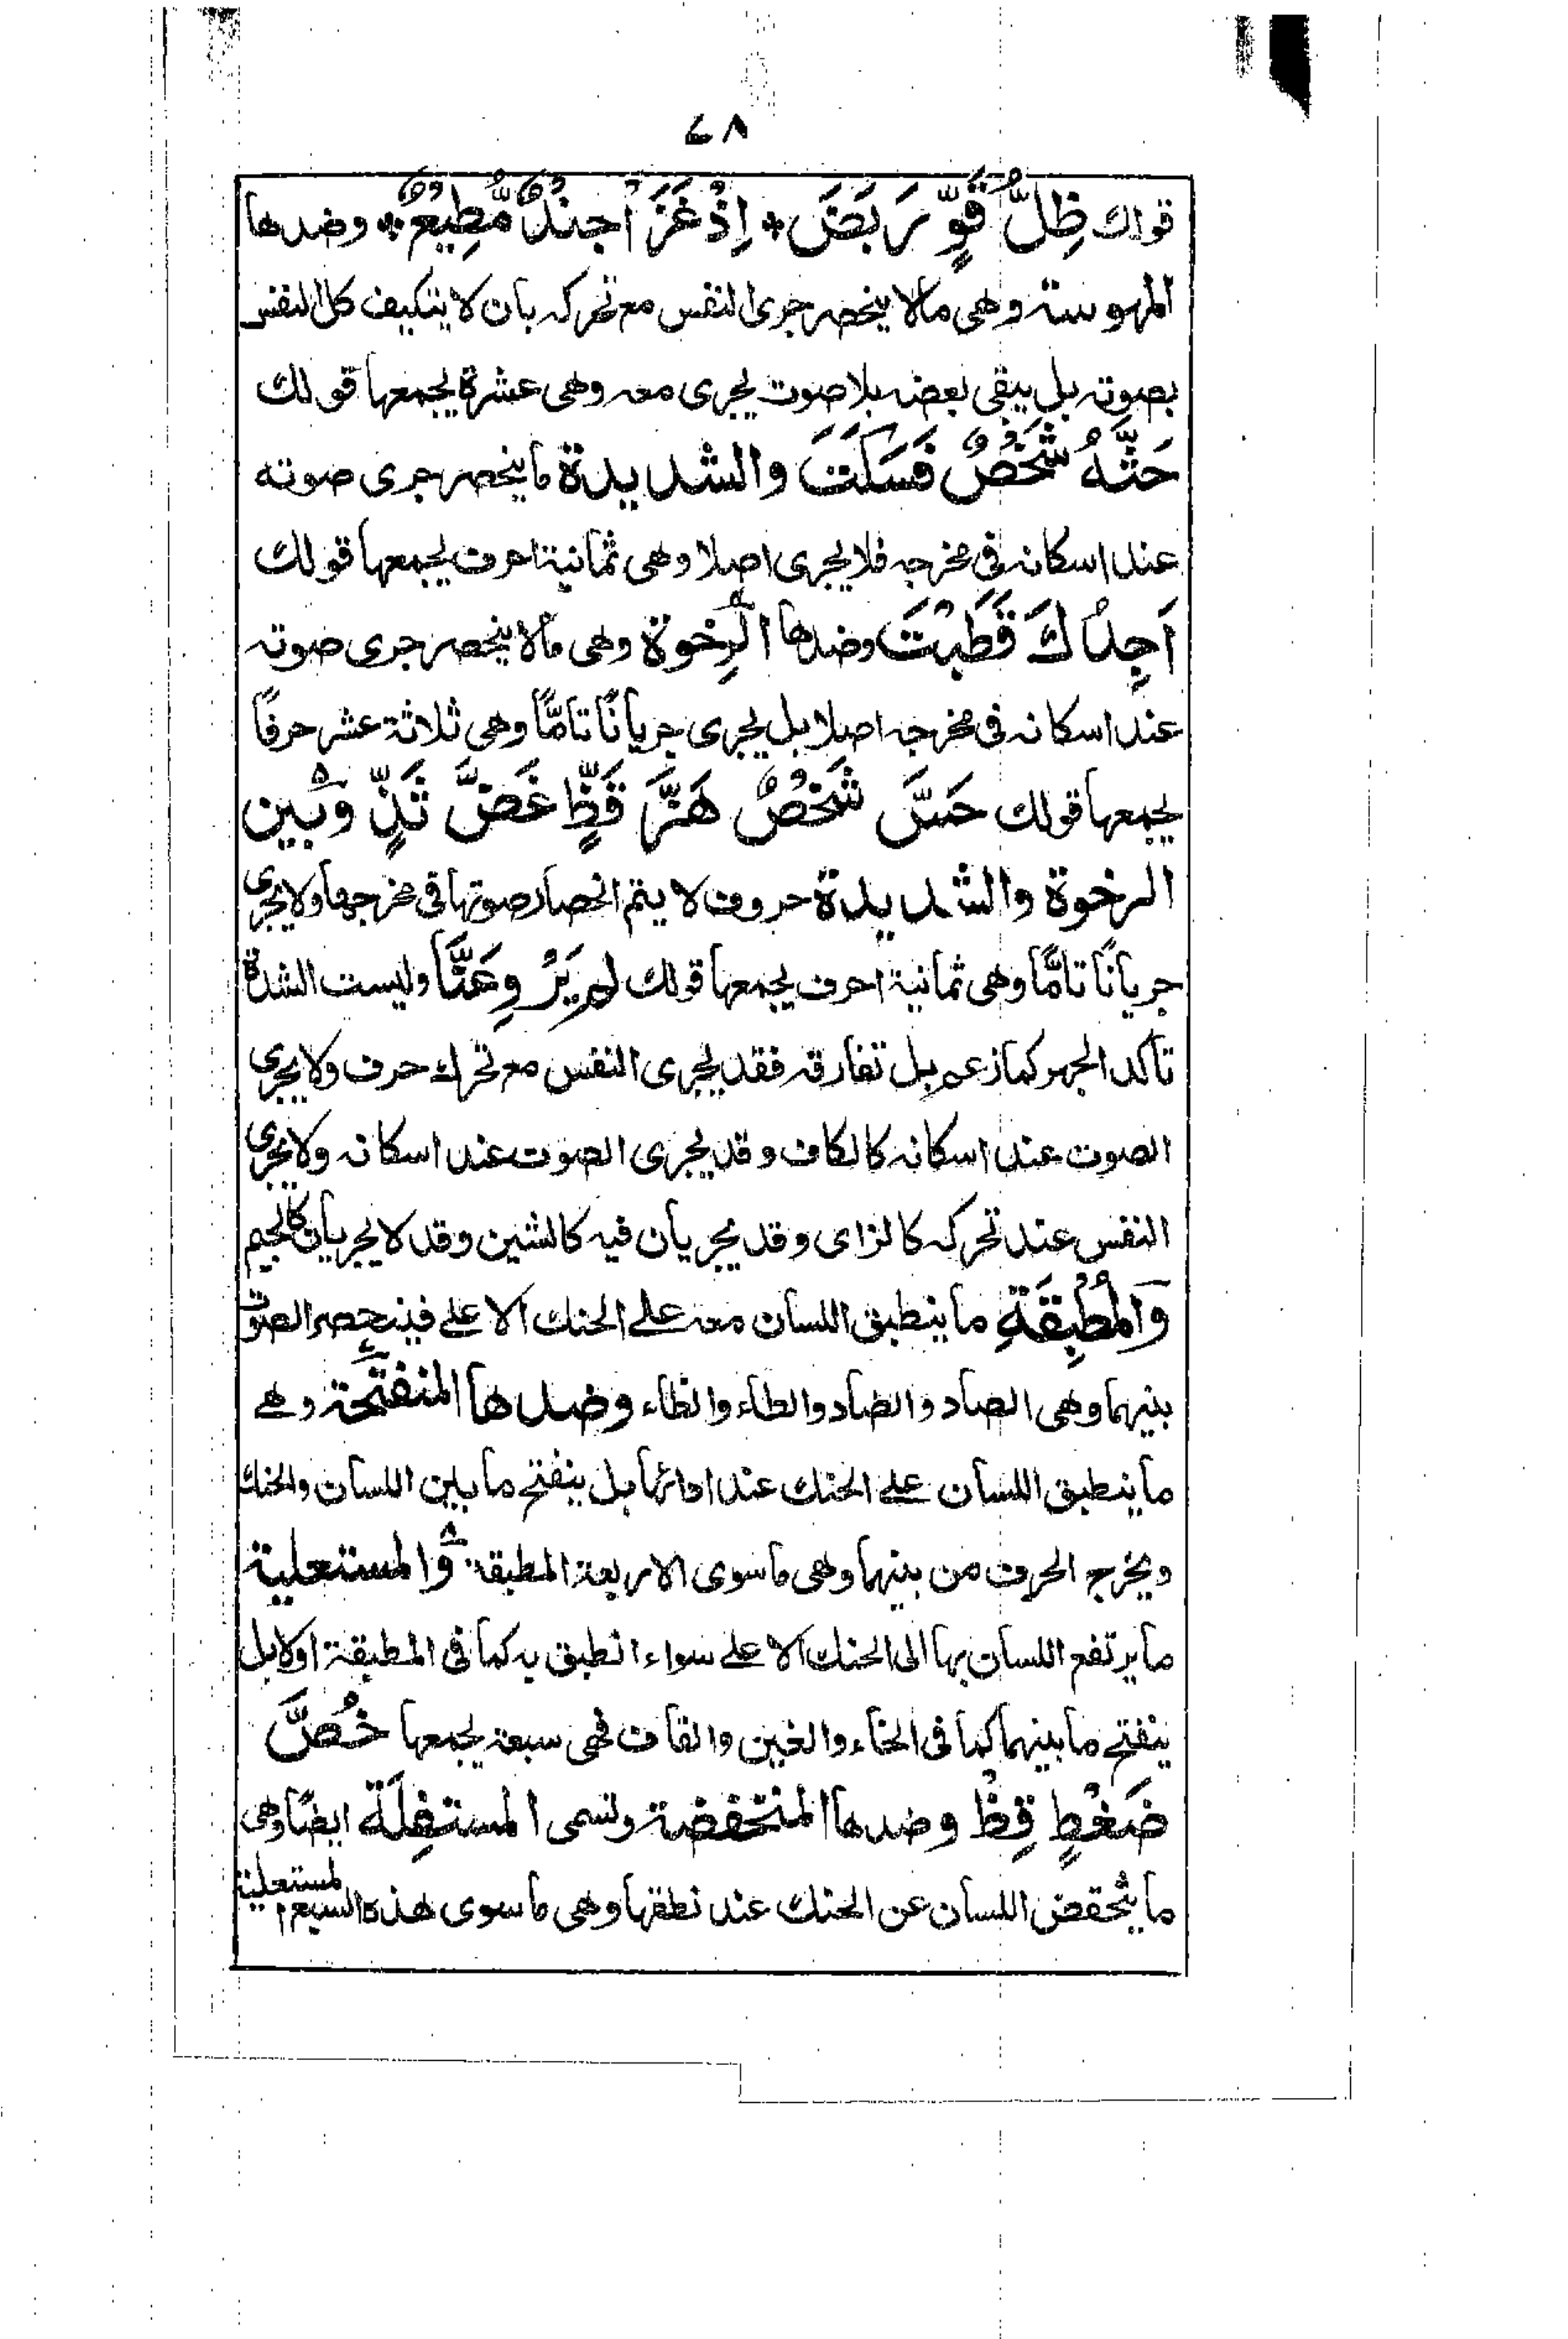 ٧٨
قولك ظِلُّ قَوٍّ رَبَضَ * اِذْ غَزَا جُنْدٌ مُّطِيْعٌ * وضدها
المهموسة وهى مالا ينحصر جرى النفس مع تحركه بان لا يتكيف كل النفس
بصوته بل يبقى بعضه بلا صوت يجرى معه وهى عشرة يجمعها قولك
حَثَّهُ شَخْصٌ فَسَكَتَ والشديدة ما ينحصر جرى صوته
عند اسكانه فى مخرجه فلا يجرى اصلا وهى ثمانية احرف يجمعها قولك
اَجِدُكَ قَطَبْتَ وضدها الرِّخوة وهى مالا ينحصر جرى صوته
عند اسكانه فى مخرجه اصلا بل يجرى جرياناً تامّاً وهى ثلاثة عشر حرفاً
يجمعها قولك حَسَّ شَخْصٌ هَزَّ فَظٍّ غَضَّ ثَذٍّ وبين
الرخوة والشديدة حروف لا يتم انحصار صوتها فى مخرجها ولا يجرى
جرياناً تامّاً وهى ثمانية احرف يجمعها قولك لم يَرْوِعَنَّا وليست الشدة
تأكد الجهر كما زعم بل تفارقه فقد يجرى النفس مع تحرك حرف ولا يجرى
الصوت عند اسكانه كالكاف وقد يجرى الصوت عند اسكانه ولا يجرى
النفس عند تحركه كالزاى وقد يجريان فيه كالشين وقد لا يجريان كالجيم
وَالمُطْبِقَةِ ما ينطبق اللسان معه على الحنك الاعلى فينحصر الصوت
بينهما وهى الصاد والضاد والطاء والظاء وضدها المنفتحة وهى
ما ينطبق اللسان على الحنك عند ادائها بل ينفتح ما بين اللسان والحنك
ويخرج الحرف من بينهما وهى ما سوى الاربعة المطبقة والمستعلية
ما يرتفع اللسان بها الى الحنك الاعلى سواء انطبق به كما فى المطبقة اولا بل
ينفتح ما بينهما كما فى الخاء والغين والقاف فهى سبعة يجمعها خُصَّ
ضَغْطٍ قِظْ وضدها المنخفضة وتسمى المستفِلَة ايضاً وهى
ما ينخفض اللسان عن الحنك عند نطقها وهى ما سوى هذه السبع المستعلية